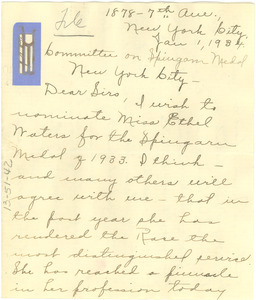 File
1878-7th Ave.,
New York City,
Jan 1, 1934.
Committee on Spingarn Medal
New York City -
Dear Sirs, I wish to
nominate Miss Ethel
Waters for the Spingarn
Medal of 1933. I think -
and many others will
agree with me - that in
the past year she has
rendered the Race the
most distinguished service.
She has reached a pinnacle
in her profession today